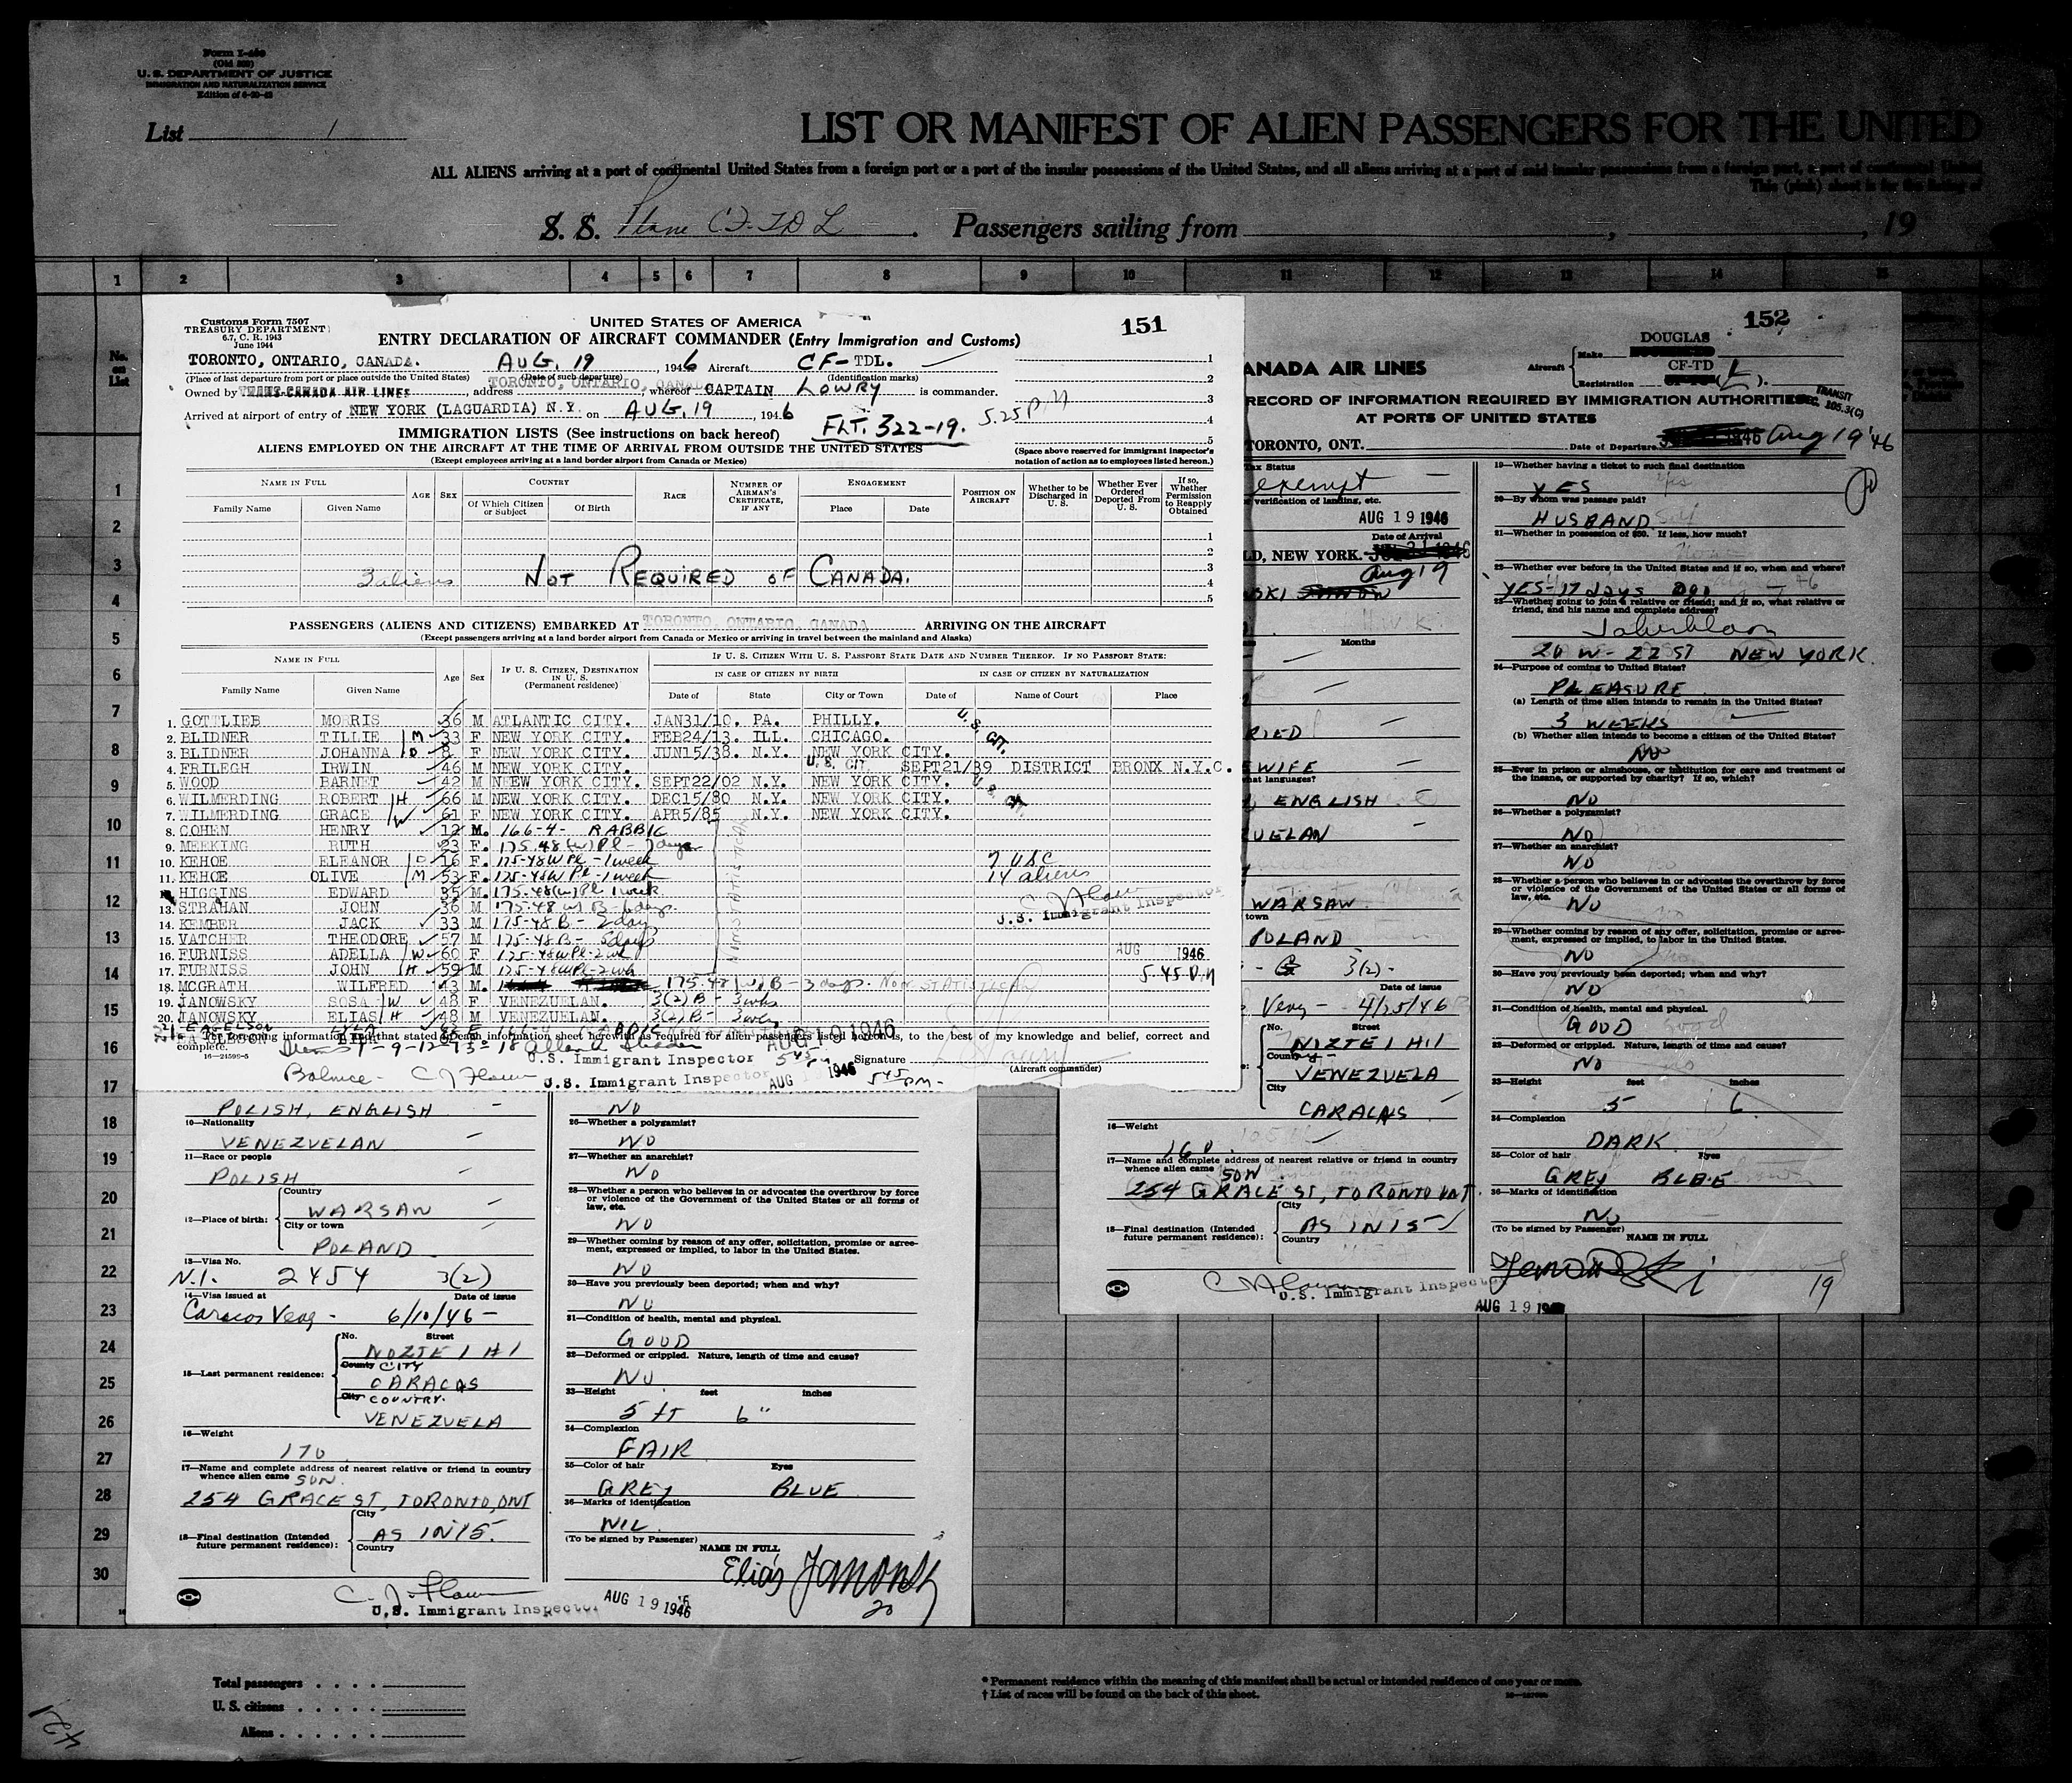 Form I-466
(Old 500)
U. S. DEPARTMENT OF JUSTICE
IMMIGRATION AND NATURALIZATION SERVICE
List 1
LIST OR MANIFEST OF ALIEN PASSENGERS FOR THE UNITED
ALL ALIENS arriving at a port of continental United States from a foreign port or a port of the insular possessions of the United States, and all aliens arriving at a port of said insular possessions from a foreign port, a port of continental United
This (pink) sheet is for the listing of
S. S. Plane CF-TDL. Passengers sailing from , , 19
1 2 3 4 5 6 7 8 9 10 11 12 13 14 15
No. on List
Customs Form 7507
TREASURY DEPARTMENT
6.7, C. R. 1943
June 1944
UNITED STATES OF AMERICA
151
ENTRY DECLARATION OF AIRCRAFT COMMANDER (Entry Immigration and Customs)
TORONTO, ONTARIO, CANADA. AUG. 19, 1946 Aircraft CF-TDL.
(Place of last departure from port or place outside the United States) (Date of such departure) (Identification marks)
Owned by TRANS-CANADA AIR LINES, address TORONTO, ONTARIO, CANADA whereof CAPTAIN LOWRY is commander.
Arrived at airport of entry of NEW YORK (LAGUARDIA) N.Y. on AUG. 19 1946 5.25 PM
FLT. 322-19.
IMMIGRATION LISTS (See instructions on back hereof)
ALIENS EMPLOYED ON THE AIRCRAFT AT THE TIME OF ARRIVAL FROM OUTSIDE THE UNITED STATES
(Except employees arriving at a land border airport from Canada or Mexico)
(Space above reserved for immigrant inspector's notation of action as to employees listed hereon.)
NAME IN FULL AGE SEX COUNTRY RACE NUMBER OF AIRMAN'S CERTIFICATE, IF ANY ENGAGEMENT POSITION ON AIRCRAFT Whether to be Discharged in U. S. Whether Ever Ordered Deported From U. S. If so, Whether Permission to Reapply Obtained
Family Name Given Name Of Which Citizen or Subject Of Birth Place Date
3 aliens NOT REQUIRED OF CANADA.
PASSENGERS (ALIENS AND CITIZENS) EMBARKED AT TORONTO, ONTARIO, CANADA ARRIVING ON THE AIRCRAFT
(Except passengers arriving at a land border airport from Canada or Mexico or arriving in travel between the mainland and Alaska)
NAME IN FULL Age Sex IF U. S. CITIZEN, DESTINATION IN U. S. (Permanent residence) IF U. S. CITIZEN WITH U. S. PASSPORT STATE DATE AND NUMBER THEREOF. IF NO PASSPORT STATE:
IN CASE OF CITIZEN BY BIRTH IN CASE OF CITIZEN BY NATURALIZATION
Family Name Given Name Date of State City or Town Date of Name of Court Place
1. GOTTLIEB MORRIS 36 M ATLANTIC CITY. JAN31/10. PA. PHILLY. U. S. CIT.
2. BLIDNER TILLIE M 33 F NEW YORK CITY. FEB24/13. ILL. CHICAGO.
3. BLIDNER JOHANNA D 8 F NEW YORK CITY. JUN15/38. N.Y. NEW YORK CITY.
4. FRILEGH IRWIN 46 M NEW YORK CITY. U. S. CIT. SEPT21/39 DISTRICT BRONX N.Y.C.
5. WOOD BARNET 42 M NEEW YORK CITY. SEPT22/02 N.Y. NEW YORK CITY. U. S. CIT.
6. WILMERDING ROBERT H 66 M NEW YORK CITY. DEC15/80 N.Y. NEW YORK CITY.
7. WILMERDING GRACE W 61 F NEW YORK CITY. APR5/85 N.Y. NEW YORK CITY.
8. COHEN HENRY 12 M. 166-4- RABBIC
9. MEEKING RUTH 23 F. 175.48(w) Pl - 7 days
10. KEHOE ELEANOR D 16 F. 175-48W Pl - 1 week 7 USC
11. KEHOE OLIVE M 53 F. 175-48W Pl - 1 week 14 aliens
HIGGINS EDWARD 35 M. 175-48(w) Pl 1 week
13. STRAHAN JOHN 36 M 175-48 w) B - 6 days.
U.S. Immigrant Inspector
14. KEMBER JACK 33 M 175-48 B - 2 days
15. VATCHER THEODORE 57 M 175-48 B - 5 days
16. FURNISS ADELLA W 60 F 175-48W Pl - 2 wk AUG 1946
17. FURNISS JOHN H 59 M 175-48W Pl - 2 wk 5.45 P.M
18. MCGRATH WILFRED 43 M. 175-48(w) B - 3 days. NON STATISTICAL
19. JANOWSKY SOSA W 48 F VENEZUELAN. 3(2) B - 3 wks
20. JANOWSKY ELIAS H 48 M VENEZUELAN. 3(2) B - 3 wks
21. EAGELSON
NON STATISTICAL
complete.
AUG 19 1946
U.S. Immigrant Inspector
Signature
(Aircraft commander)
U.S. Immigrant Inspector AUG 1946 5 45 PM-
POLISH, ENGLISH
10—Nationality
VENEZUELAN
11—Race or people
POLISH
12—Place of birth: Country
WARSAW
City or town
POLAND
13—Visa No.
N.I. 2454 3(2)
14—Visa issued at Date of issue
Caracas Venz - 6/10/46 -
15—Last permanent residence: No. Street
NOZTE 1 #1
County CITY
CARACAS
City COUNTRY.
VENEZUELA
16—Weight
170
17—Name and complete address of nearest relative or friend in country whence alien came SON.
254 GRACE ST, TORONTO, ONT
18—Final destination (Intended future permanent residence): City
AS IN 15.
Country
U.S. Immigrant Inspector
NO
26—Whether a polygamist?
NO
27—Whether an anarchist?
NO
28—Whether a person who believes in or advocates the overthrow by force or violence of the Government of the United States or all forms of law, etc.
NO
29—Whether coming by reason of any offer, solicitation, promise or agreement, expressed or implied, to labor in the United States.
NO
30—Have you previously been deported; when and why?
NO
31—Condition of health, mental and physical.
GOOD
32—Deformed or crippled. Nature, length of time and cause?
NO
33—Height feet inches
5 ft 6"
34—Complexion
FAIR
35—Color of hair Eyes
GREY BLUE
36—Marks of identification
NIL
(To be signed by Passenger)
NAME IN FULL
Elias
20
AUG 19 1946
152
ANADA AIR LINES
Aircraft Make DOUGLAS
Registration CF-TD (L).
TRANSIT
SEC. 105.3(C)
RECORD OF INFORMATION REQUIRED BY IMMIGRATION AUTHORITIES
AT PORTS OF UNITED STATES
TORONTO, ONT. Date of Departure Aug 19 '46
Tax Status
exempt
verification of landing, etc.
AUG 19 1946
Date of Arrival
LD, NEW YORK.
Aug 19
Months
RIED
EWIFE
ENGLISH
UELAN
WARSAW
town
POLAND
3(2) -
Date of issue
Venz - 4/25/46
No. Street
NIZTE 1 #1
VENEZUELA
City
CARACAS
16—Weight
160
17—Name and complete address of nearest relative or friend in country whence alien came SON
254 GRACE ST, TORONTO ONT.
18—Final destination (Intended future permanent residence): City
AS IN 15
Country
U.S. Immigrant Inspector
AUG 19 1946
19—Whether having a ticket to such final destination
YES
20—By whom was passage paid?
HUSBAND
21—Whether in possession of $50. If less, how much?
22—Whether ever before in the United States and if so, when and where?
YES - 17 days
23—Whether going to join a relative or friend; and if so, what relative or friend, and his name and complete address?
20 W - 22 ST NEW YORK.
24—Purpose of coming to United States?
PLEASURE
(a) Length of time alien intends to remain in the United States?
3 WEEKS
(b) Whether alien intends to become a citizen of the United States?
NO
25—Ever in prison or almshouse, or institution for care and treatment of the insane, or supported by charity? If so, which?
NO
26—Whether a polygamist?
NO
27—Whether an anarchist?
NO
28—Whether a person who believes in or advocates the overthrow by force or violence of the Government of the United States or all forms of law, etc.
NO
29—Whether coming by reason of any offer, solicitation, promise or agreement, expressed or implied, to labor in the United States.
NO
30—Have you previously been deported; when and why?
NO
31—Condition of health, mental and physical.
GOOD
32—Deformed or crippled. Nature, length of time and cause?
NO
33—Height feet inches
5 6
34—Complexion
DARK
35—Color of hair Eyes
GREY BLUE
36—Marks of identification
NO
(To be signed by Passenger)
NAME IN FULL
19
Total passengers
U. S. citizens
Aliens
* Permanent residence within the meaning of this manifest shall be actual or intended residence of one year or more.
† List of races will be found on the back of this sheet.
421